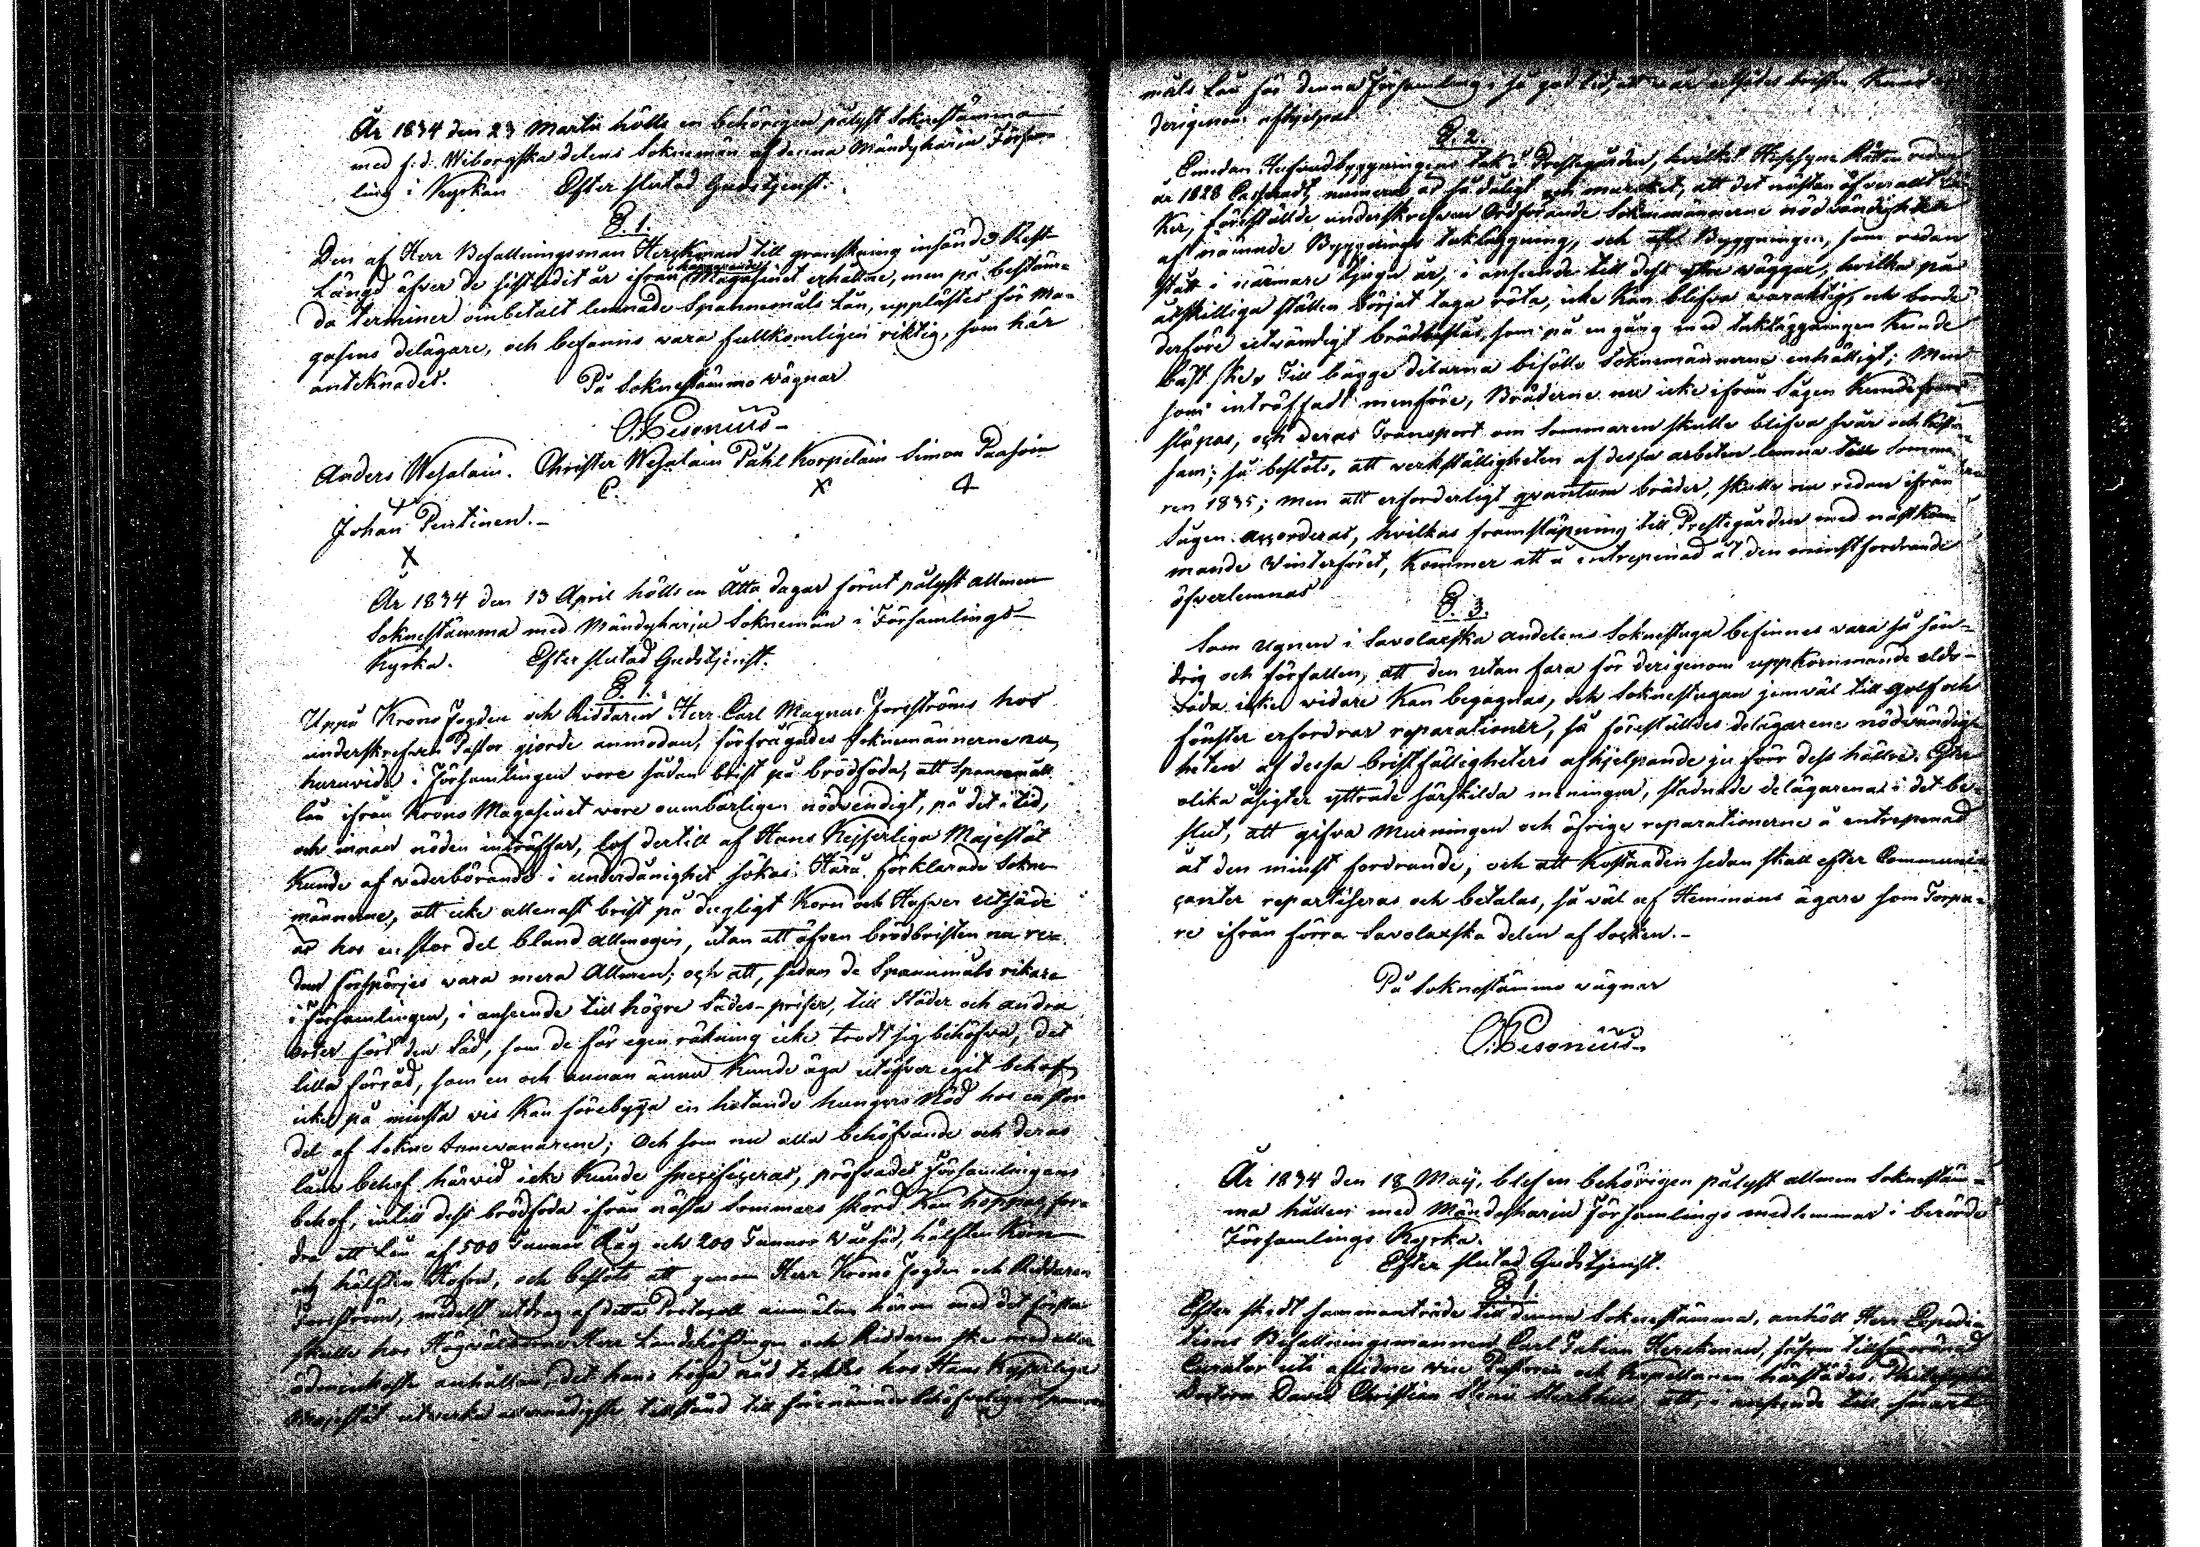 År 1834 den 23 Martii hölls en behörigen pålyst Soknestämma
med f. d. Wiborgska delens Soknemän af denna Mändyharju Försam-
ling i Kyrkan Efter slutad Gudstjenst.
§. 1.
Den af Herr Befallningsman Herckman till granskning insände Rest
Längd öfver de sistledit år ifrån Magasinet erhållne, men på bestäm-
da terminer oinbetalt lemnade Spannemåls Lån, upplästes för Ma-
gasins delägare, och befanns vara fullkomligen riktig, som här
anteknades. På Soknestämmo vägnar
O. Pesonius
Anders Wesalain. Christer Wesalain Påhl Korpelain Simon Paasoin
Johan Pentinen.
År 1834 den 13 April hölls en Åtta dagar förut pålyst allmen
Soknestämma med Mändyharju Soknemän i Församlings
Kyrka. Efter slutad Gudstjenst.
§. 1.
Uppå Krono Fogden och Riddaren Herr Carl Magnus Forsströms hos
underskrefven Pastor gjorde anmodan, förfrågades Soknemännerne nu,
huruvida i Församlingen vore sådan brist på brödföda, att Spannemåls
lån ifrån Krono Magasinet vore oumbärligen nödvendigt, på det i tid,
och innan nöden inträffar, lof dertill af Hans Kejserliga Majestät
Kunde af vederbörande i underdånighet sökas. Härå förklarade Sokne-
männerne, att icke allenast brist på dugligt Korn och Hafver utsäde
är hos en stor del bland Allmogen, utan att äfven brödbristen nu re-
dan förspörjes vara mera Allmen; och att, sedan de Spannmåls rikare
i Församlingen, i anseende till högre Sädes-priser, till Städer och andra
orter fört den Säd, som de för egen räkning icke trodt sig behöfva, det
lilla förråd, som en och annan ännu Kunde äga utöfver eget behof,
icke på minsta vis Kan förebygga en hotande hungers Nöd hos en stor
del af Sokne Innevånarene; Och som nu alla behöfvande och deras
låne behof härvid icke Kunde specificeras, pröfvades Församlingens
behof, intill dess brödföda ifrån nästa Sommars skörd Kan hoppas, for-
dra ett Lån af 500 Tunnor Råg och 200 Tunnor Vårsäd, hälften Korn
och hälften Hafre, och beslöts att genom Herr Krono Fogden och Riddaren
Forsström, medelst utdrag af detta Protocoll anmälan härom med det första
skulle hos Högvälborne Herr Landshöfdingen och Riddaren ske med aller
ödmjukaste anhållan, det hans höga nåd täcktes hos Hans Kejserliga
Majestät utverka allernådigste tillstånd till förenämnde behöfveliga Spanne-
måls Lån för denna Församling i så god tid, att vår utsädes bristen Kunde
derigenom afhjelpas.
§. 2.
Emedan Hufvudbyggningens tak å Prestegården, hvilket Husesyns Rätten redan
år 1828 Casserat, numera är så dåligt och murket, att det nästan öfverallt läc-
ker, föreställde underskrefven Ordförande Soknemännerne nödvändigheten
af nämnde Byggnings taktäggning, och att Byggningen, som redan
stått i närmare tjugu år, i anseende till dess yttre väggar, hvilka på
åtskilliga ställen börjat taga röta, icke Kan blifva varaktig, och borde
derföre utvändigt brädbeslås, som på en gång med taktäggningen Kunde
bäst ske. Till bägge delarna biföllo Soknemännerne enhälligt; Men
som inträffadt menföre, Bräderne nu icke ifrån Sågen Kunde fram-
släpas, och deras Transport om Sommaren skulle blifva svår och kostsam-
sam; så beslöts, att verkställigheten af dessa arbeten lemna till Somma-
ren 1835; men att erforderligt qvantum bräder, skulle nu redan ifrån
Sågen accorderas, hvilkas framsläpning till Prestegården med nästkom-
mande Vinterföret, Kommer att å entreprenad åt den minstfordrande
öfverlemnas
§. 3.
Som ugnen i Savolaxska andelens Soknestuga befinnes vara så sön-
drig och förfallen, att den utan fara för derigenom uppkommande elds-
våda icke vidare Kan begagnas, och Soknestugan jemväl till golf och
fönster erfordrar reparationer, så föreställdes delägarene nödvändig-
heten af dessa bristfälligheters afhjelpande ju förr dess hällre. Efter
olika åsigter yttrade särskilda meningar, stadnade delägarena i det be-
slut, att gifva Murningen och öfrige reparationerne å entreprenad
åt den minst fordrande, och att Kostnaden sedan skall efter Communi-
canter repartiseras och betalas, så väl af Hemmans ägare som Torpa-
re ifrån förra Savolaxska delen af Socken.
På Soknestämmo vägnar
O. Pesonius
År 1834 den 18 Maij, blef en behörigen pålyst allmen Soknestäm-
ma hållen med Mändyharju Församlings medlemmar i berörde
Församlings Kyrka.
Efter slutad Gudstjenst.
§. 1.
Efter skedt sammanträde till denna Soknestämma, anhöll Herr Expedi-
tions Befallningsmannen Carl Fabian Herckman, såsom tillförordnad
Curator uti aflidne vice Pastorn och Kapellanen härstädes, Philosophie
Doctorn David Christian att, i anseende till